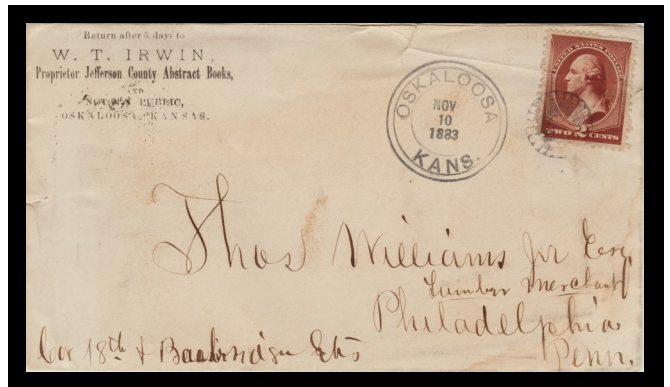 Return after 5 days to
W. T. IRWIN,
Proprietor Jefferson County Abstract Books,
AND
NOTARY PUBLIC,
OSKALOOSA, KANSAS.
OSKALOOSA
NOV
10
1883
KANS.
UNITED STATES POSTAGE
TWO 2 CENTS
Thos Williams Jr Esq.
Lumber Merchant
Philadelphia
Penn.
Cor 18th &